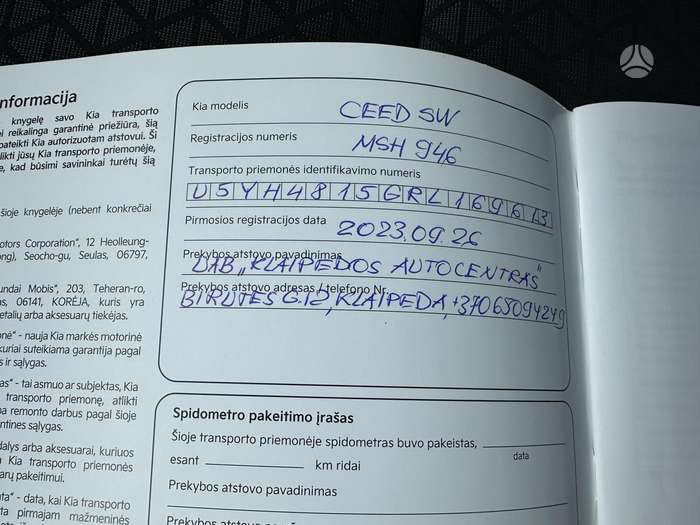 nformacija
knygelę savo Kia transporto
i reikalinga garantinė priežiūra, šią
pateikti Kia autorizuotam atstovui. Ši
likti jūsų Kia transporto priemonėje,
e, kad būsimi savininkai turėtų šią
šioje knygelėje (nebent konkrečiai
otors Corporation“, 12 Heolleung-
ong), Seocho-gu, Seulas, 06797,
undai Mobis“, 203, Teheran-ro,
as, 06141, KORĖJA, kuris yra
etalių arba aksesuarų tiekėjas.
onė“ - nauja Kia markės motorinė
kuriai suteikiama garantija pagal
s ir sąlygas.
as“ - tai asmuo ar subjektas, Kia
transporto priemonę, atlikti
ba remonto darbus pagal šioje
ntines sąlygas.
dalys arba aksesuarai, kuriuos
Kia transporto priemonės
arų pakeitimui.
ta“ - data, kai Kia transporto
ta pirmajam mažmeninės
Kia modelis CEED SW
Registracijos numeris MSH 946
Transporto priemonės identifikavimo numeris
U5YH4815GRL169613
Pirmosios registracijos data 2023.09.26
Prekybos atstovo pavadinimas
UAB „KLAIPĖDOS AUTOCENTRAS“
Prekybos atstovo adresas / telefono Nr.
BIRUTĖS G.12, KLAIPĖDA, +37065094249
Spidometro pakeitimo įrašas
Šioje transporto priemonėje spidometras buvo pakeistas,
data
esant km ridai
Prekybos atstovo pavadinimas